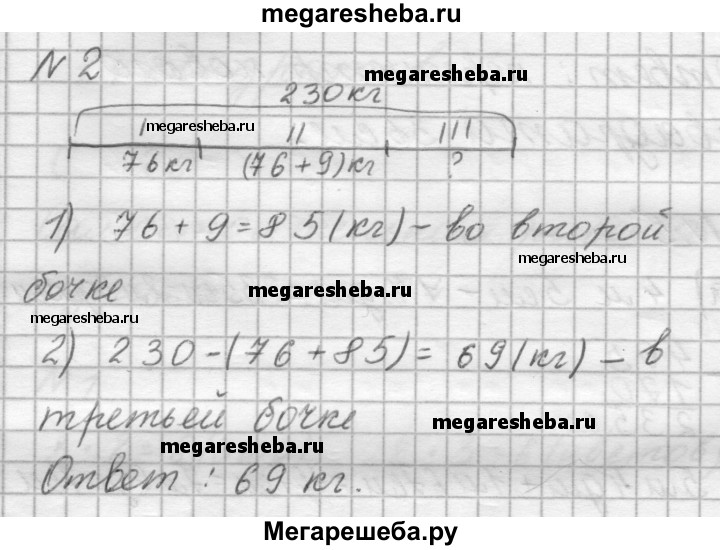 megaresheba.ru
№ 2
megaresheba.ru
230 кг
I megaresheba.ru II III
76 кг (76+9) кг ?
1) 76 + 9 = 85 (кг) – во второй
megaresheba.ru
бочке megaresheba.ru
megaresheba.ru
2) 230 – (76 + 85) = 69 (кг) – в
третьей бочке megaresheba.ru
megaresheba.ru
Ответ : 69 кг.
Мегарешеба.ру